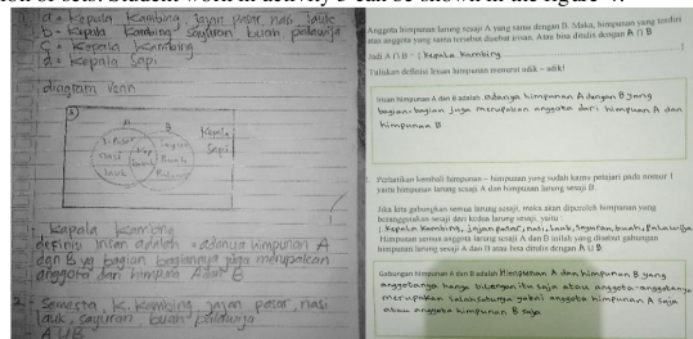 a = Kepala Kambing, jajan pasar, nasi, lauk
b = Kepala Kambing, Sayuran, buah, palawija
c = Kepala Kambing
d = Kepala Sapi
diagram Venn
A
B
Kepala
Sapi
J. Pasar
nasi
lauk
Kep
Sayuran
Buah
Palawija
1. Kapala Kambing
definisi Irisan adalah = adanya himpunan A
dan B yg bagian bagiannya juga merupakan
anggota dari himpunan A dan B
2. Semesta, K. Kambing, jajan pasar, nasi
lauk, sayuran, buah palawija
A U B
Anggota himpunan larung sesaji A yang sama dengan B. Maka, himpunan yang terdiri
atas anggota yang sama tersebut disebut irisan. Atau bisa ditulis dengan A ∩ B
Jadi A ∩ B = { Kepala Kambing
Tuliskan definisi Irisan himpunan menurut adik – adik!
Irisan himpunan A dan B adalah adanya himpunan A dengan B yang
bagian-bagian juga merupakan anggota dari himpunan A dan
himpunan B
Perhatikan kembali himpunan – himpunan yang sudah kamu pelajari pada nomor 1
yaitu himpunan larung sesaji A dan himpunan larung sesaji B.
Jika kita gabungkan semua larung sesaji, maka akan diperoleh himpunan yang
beranggotakan sesaji dari kedua larung sesaji, yaitu :
{ Kepala Kambing, jajan pasar, nasi, lauk, sayuran, buah, palawija
Himpunan semua anggota larung sesaji A dan B inilah yang disebut gabungan
himpunan larung sesaji A dan B atau bisa ditulis dengan A U B
Gabungan himpunan A dan B adalah Himpunan A dan himpunan B yang
anggotanya hanya bilangan itu saja atau anggota-anggotanya
merupakan salah satunya yakni anggota himpunan A saja
atau anggota himpunan B saja